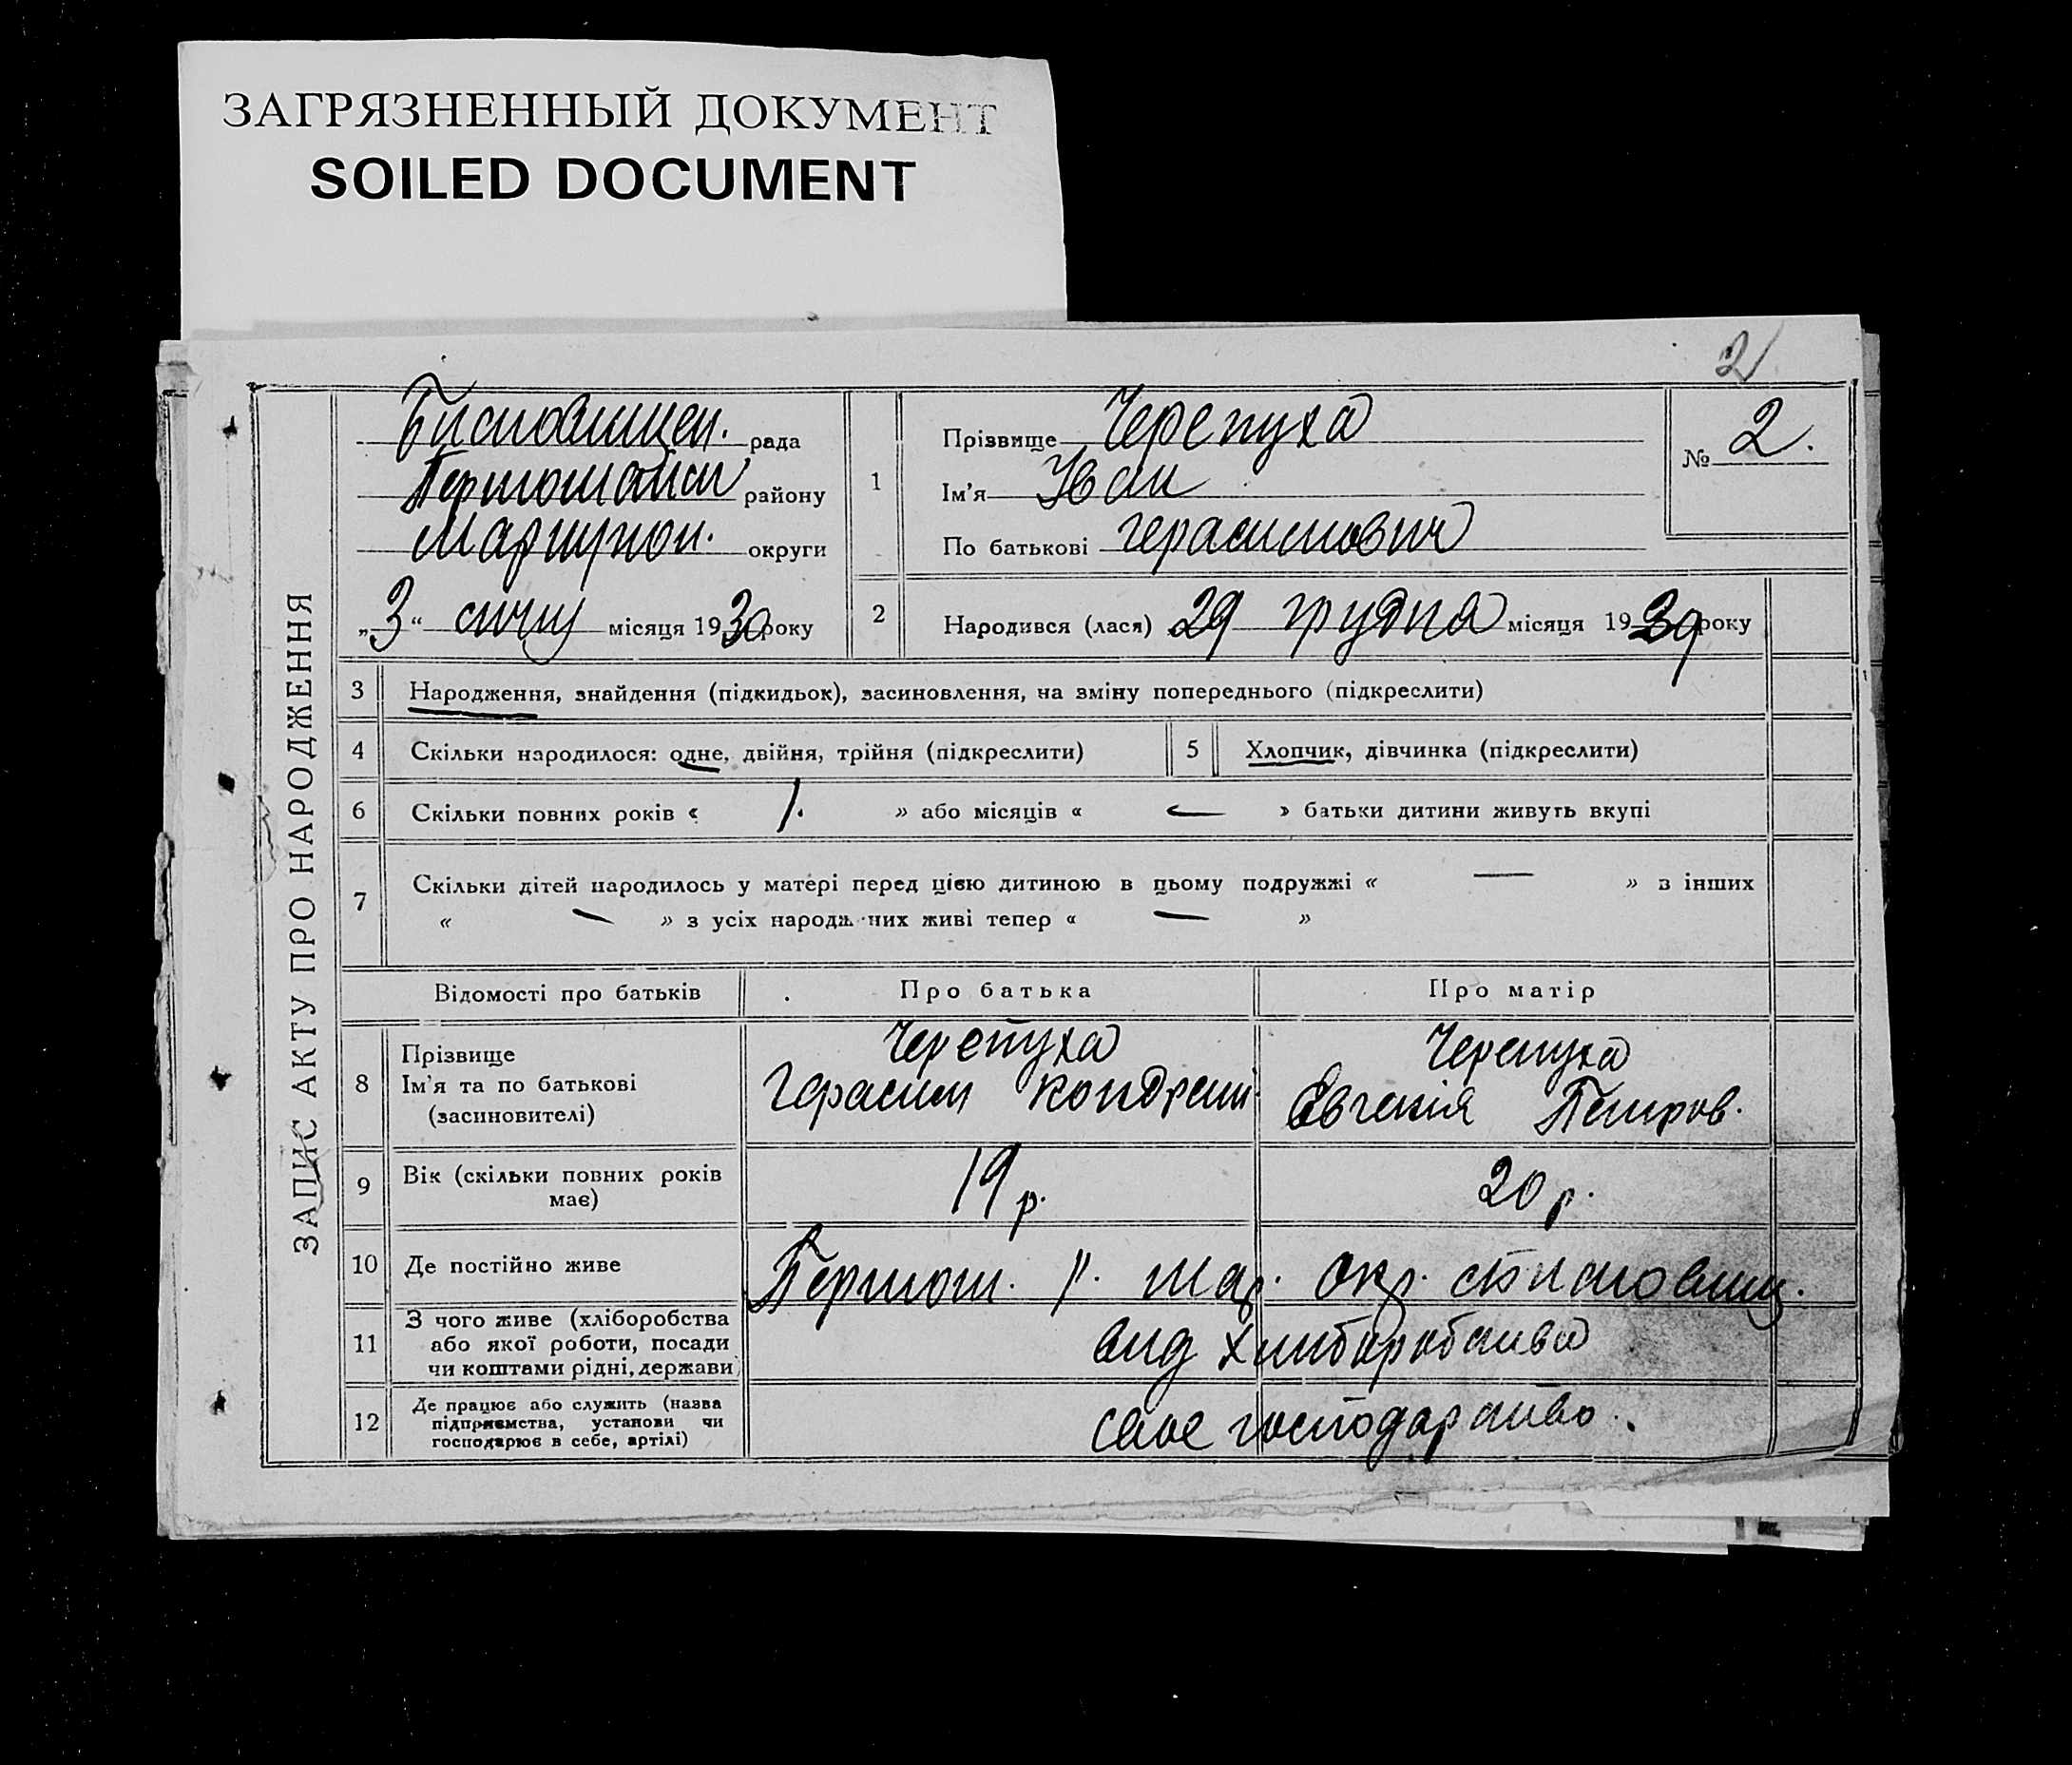 ЗАГРЯЗНЕННЫЙ ДОКУМЕНТ
SOILED DOCUMENT
2
ЗАПИС АКТУ ПРО НАРОДЖЕННЯ
рада
району
Маріупол. округи
„3“ січня місяця 1930 року
1
Прізвище Черепуха
Ім'я Иван
По батькові Герасимович
№ 2.
2 Народився (лася) 29 грудня місяця 19 року
3 Народження, знайдення (підкидьок), засиновлення, на зміну попереднього (підкреслити)
4 Скільки народилося: одне, двійня, трійня (підкреслити)
5 Хлопчик, дівчинка (підкреслити)
6 Скільки повних років « 1. » або місяців « — » батьки дитини живуть вкупі
7 Скільки дітей народилось у матері перед цією дитиною в цьому подружжі « — » з інших
« — » з усіх народж них живі тепер « — »
Відомості про батьків
Про батька
Про матір
8 Прізвище
Ім'я та по батькові
(засиновителі)
Черепуха
Герасим Кондрат.
Черепуха
Євгенія Петров.
9 Вік (скільки повних років
має)
19 р.
20 р.
10 Де постійно живе
р. Мар. окр.
11 З чого живе (хліборобства
або якої роботи, посади
чи коштами рідні, держави)
вид хлиборобства
12 Де працює або служить (назва
підприємства, установи чи
господарює в себе, артілі)
своє господарство.